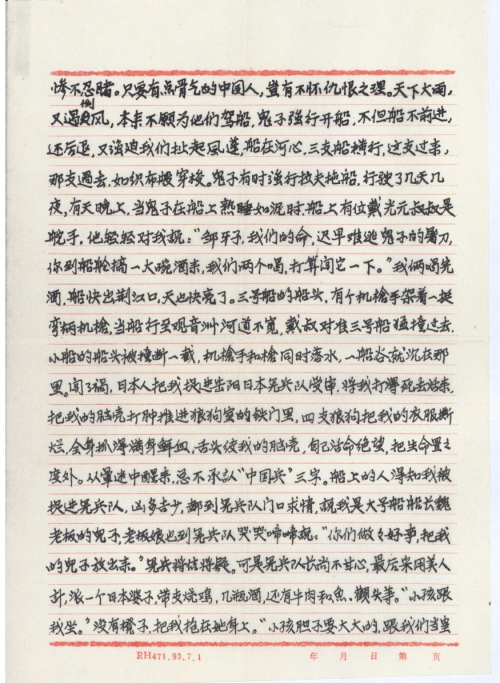 惨不忍睹。只要有点骨气的中国人，岂有不怀仇恨之理。天下大雨，
又遇倒风，本来不愿为他们驾船，鬼子强行开船，不但船不前进，
还后退，又强迫我们扯起风蓬，船在河心，三支船横行，这支过来，
那支过去，如织布梭穿梭。鬼子有时强行拉夫拖船，行驶了几天几
夜，有天晚上，当鬼子在船上熟睡如泥时，船上有位戴光元叔叔是
舵手，他轻轻对我说：“邹牙子，我们的命，迟早难逃鬼子的屠刀，
你到船舱搞一大碗酒来，我们两个喝，打算闯它一下。”我俩喝完
酒，船快出荆江口，天也快亮了。三号船的船头，有个机枪手架着一挺
弯柄机枪，当船行至观音洲河道不宽，戴叔对准三号船猛撞过去，
小船的船头被撞断一截，机枪手和枪同时落水，一船谷就沉在那
里。闯了祸，日本人把我捉进岳阳日本宪兵队受审，将我打得死去活来，
把我的脑壳打肿推进狼狗窝的铁门里，四支狼狗把我的衣服撕
烂，全身抓得满身鲜血，舌头绞我的脑壳，自己活命绝望，把生命置之
度外。从晕迷中醒来，总不承认“中国兵”三字。船上的人得知我被
捉进宪兵队，凶多吉少，挪到宪兵队门口求情，说我是大号船船长魏
老板的儿子，老板娘也到宪兵队哭哭啼啼说：“你们做做好事，把我
的儿子放出来。”宪兵将信将疑。可是宪兵队长尚不甘心，最后采用美人
计，派一个日本婆子，带支烧鸡，几瓶酒，还有牛肉和鱼、罐头等。“小孩跟
我坐。”没有橙子，把我抱在她身上。“小孩胆子要大大的，跟我们当当
RH471.93.7.1 年 月 日 第 页